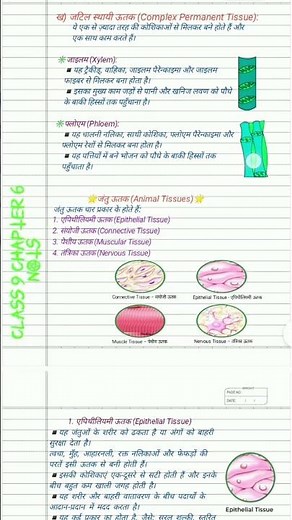 ख) जटिल स्थायी ऊतक (Complex Permanent Tissue):
ये एक से ज़्यादा तरह की कोशिकाओं से मिलकर बने होते हैं और
एक साथ काम करते हैं।
जाइलम (Xylem):
■ यह ट्रैकीड्, वाहिका, जाइलम पैरेन्काइमा और जाइलम
फाइबर से मिलकर बना होता है।
■ इसका मुख्य काम जड़ों से पानी और खनिज लवण को पौधे
के बाकी हिस्सों तक पहुँचाना है।
फ्लोएम (Phloem):
■ यह चालनी नलिका, साथी कोशिका, फ्लोएम पैरेन्काइमा और
फ्लोएम रेशों से मिलकर बना होता है।
■ यह पत्तियों में बने भोजन को पौधे के बाकी हिस्सों तक
पहुँचाता है।
जंतु ऊतक (Animal Tissues)
जंतु ऊतक चार प्रकार के होते हैं:
1. एपिथीलियमी ऊतक (Epithelial Tissue)
2. संयोजी ऊतक (Connective Tissue)
3. पेशीय ऊतक (Muscular Tissue)
4. तंत्रिका ऊतक (Nervous Tissue)
CLASS 9 CHAPTER 6
NOTS
Connective Tissue - संयोजी ऊतक
Epithelial Tissue - एपिथीलियमी ऊतक
Muscle Tissue - पेशीय ऊतक
Nervous Tissue - तंत्रिका ऊतक
PAGE NO.
DATE
1. एपिथीलियमी ऊतक (Epithelial Tissue)
■ यह जंतुओं के शरीर को ढकता है या अंगों को बाहरी
सुरक्षा देता है।
त्वचा, मुँह, आहारनली, रक्त नलिकाओं और फेफड़ों की
परतें इसी ऊतक से बनी होती हैं।
■ इसकी कोशिकाएं एक-दूसरे से सटी होती हैं और इनके
बीच बहुत कम खाली जगह होती है।
■ यह शरीर और बाहरी वातावरण के बीच पदार्थों के
आदान-प्रदान में मदद करता है।
■ यह कई प्रकार का होता है, जैसे: सरल शल्की, स्तरित
Epithelial Tissue